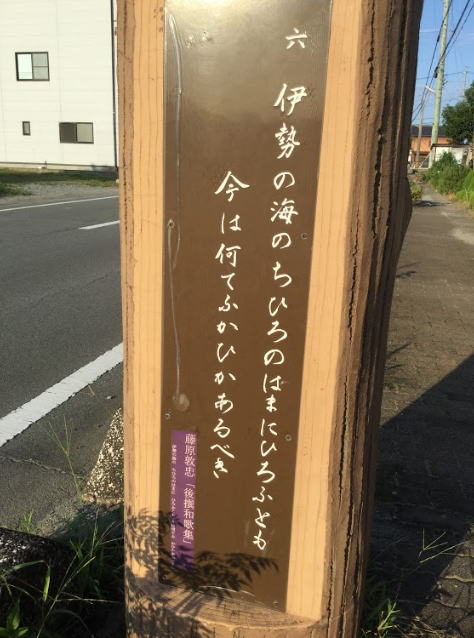 六 伊勢の海のちひろのはまにひろふとも
今は何てふかひかあるべき
藤原敦忠「後撰和歌集」